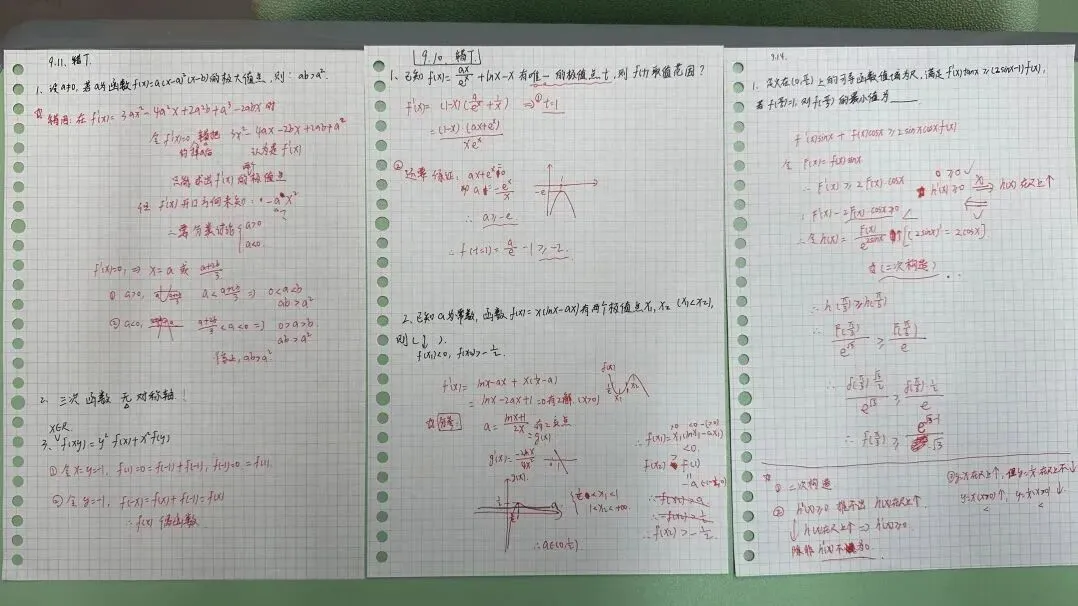 9.11. 错了.
1、设a≠0, 若a为函数f(x)=a(x-a)²(x-b)的极大值点, 则: ab>a².
错因: 在 f'(x)= 3ax²-4a²x+2a²b+a³-2abx 时
令f'(x)=0 错把 3x²-4ax-2bx+2ab+a²
约掉a后 认为是 f'(x)
只能求出f'(x)的两个极值点
但 f'(x)开口方向未知:
∴需分类讨论 { a>0
a<0.
f'(x)=0, ⇒ x=a 或 (a+2b)/3
① a>0, a<(a+2b)/3 ⇒ 0<a<b
ab>a²
② a<0, (a+2b)/3<a<0 ⇒ 0>a>b
ab>a²
综上, ab>a².
2、三次函数 无对称轴!
x∈R.
3、f(xy)=y²f(x)+x²f(y)
① 令x=y=-1, f(1)=0=f(-1)+f(-1), f(-1)=0=f(1).
② 令y=-1, f(-x)=f(x)+f(-1)=f(x)
∴f(x) 偶函数
9.10 错了.
1、已知 f(x)= ax/eˣ +lnx-x 有唯一的极值点t, 则f(t)取值范围?
f'(x)= (1-x)(a/eˣ+1/x) ⇒① t=1
= (1-x)·(ax+eˣ)/(xeˣ)
② 还要保证: ax+eˣ≥0
即 a≥-eˣ/x
-e
1
∴ a≥-e
∴ f(t=1)= a/e -1≥-2.
2、已知a为常数, 函数f(x)=x(lnx-ax)有两个极值点x₁, x₂ (x₁<x₂),
则( ).
f(x₁)<0, f(x₂)>-1/2.
f'(x)= lnx-ax+x(1/x-a)
= lnx-2ax+1=0有2解(x>0)
f(x)
x₁ x₂
a= (lnx+1)/2x 有2交点
=g(x)
g'(x)= -2lnx/4x²
g(x)
{ 1/e<x₁<1
1<x₂<+∞
∴a∈(0,1/2)
∴f(x₁)=x₁(lnx₁-ax₁)
<0.
f(x₂) > f(1)
=-a∈(-1/2,0)
∴f(x₂)>-1/2
9.14.
1. 定义在(0,π/2)上的可导函数值域为R, 满足f'(x)tanx≥(2sinx-1)f(x),
若f(π/6)=1, 则f(π/3)的最小值为____
f'(x)sinx + f(x)cosx ≥ 2sinxcosxf(x)
令 F(x)=f(x)sinx
∴ F'(x) ≥ 2F(x)·cosx
h'(x)≥0 ⇒ h(x)在R上↑
∴ F'(x)-2F(x)·cosx≥0
∴令h(x)= F(x)/e^(2sinx) ↑ [(2sinx)'=2cosx]
☆(二次构造)
∴ h(π/3)≥h(π/6)
∴ F(π/3)/e^√3 ≥ F(π/6)/e
∴ f(π/3)·√3/2 / e^√3 ≥ f(π/6)·1/2 / e
∴ f(π/3) ≥ e^(√3-1)/√3
① 二次构造
② h'(x)≥0 推不出 h(x)在R上↑
h(x)在R上↑ ⇒ h'(x)≥0.
除非h'(x)不恒为0.